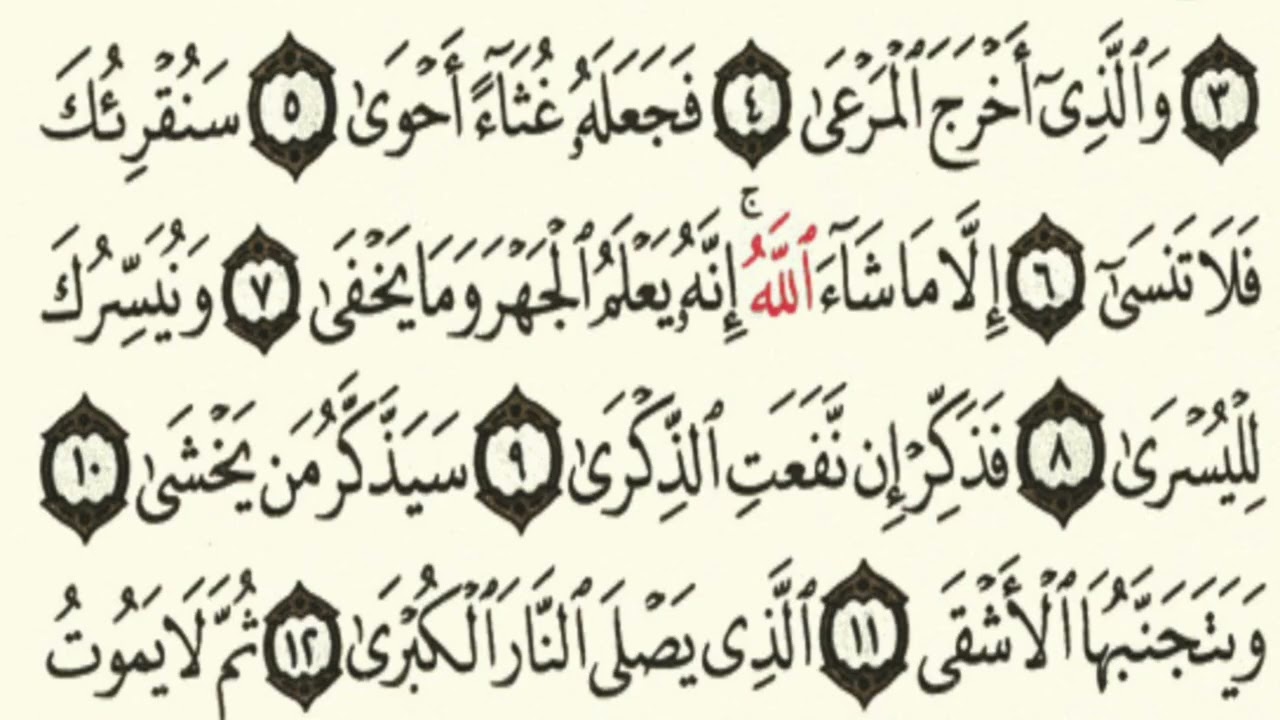 ٣ وَٱلَّذِىٓ أَخْرَجَ ٱلْمَرْعَىٰ ٤ فَجَعَلَهُۥ غُثَآءً أَحْوَىٰ ٥ سَنُقْرِئُكَ
فَلَا تَنسَىٰٓ ٦ إِلَّا مَا شَآءَ ٱللَّهُ ۚ إِنَّهُۥ يَعْلَمُ ٱلْجَهْرَ وَمَا يَخْفَىٰ ٧ وَنُيَسِّرُكَ
لِلْيُسْرَىٰ ٨ فَذَكِّرْ إِن نَّفَعَتِ ٱلذِّكْرَىٰ ٩ سَيَذَّكَّرُ مَن يَخْشَىٰ ١٠
وَيَتَجَنَّبُهَا ٱلْأَشْقَى ١١ ٱلَّذِى يَصْلَى ٱلنَّارَ ٱلْكُبْرَىٰ ١٢ ثُمَّ لَا يَمُوتُ